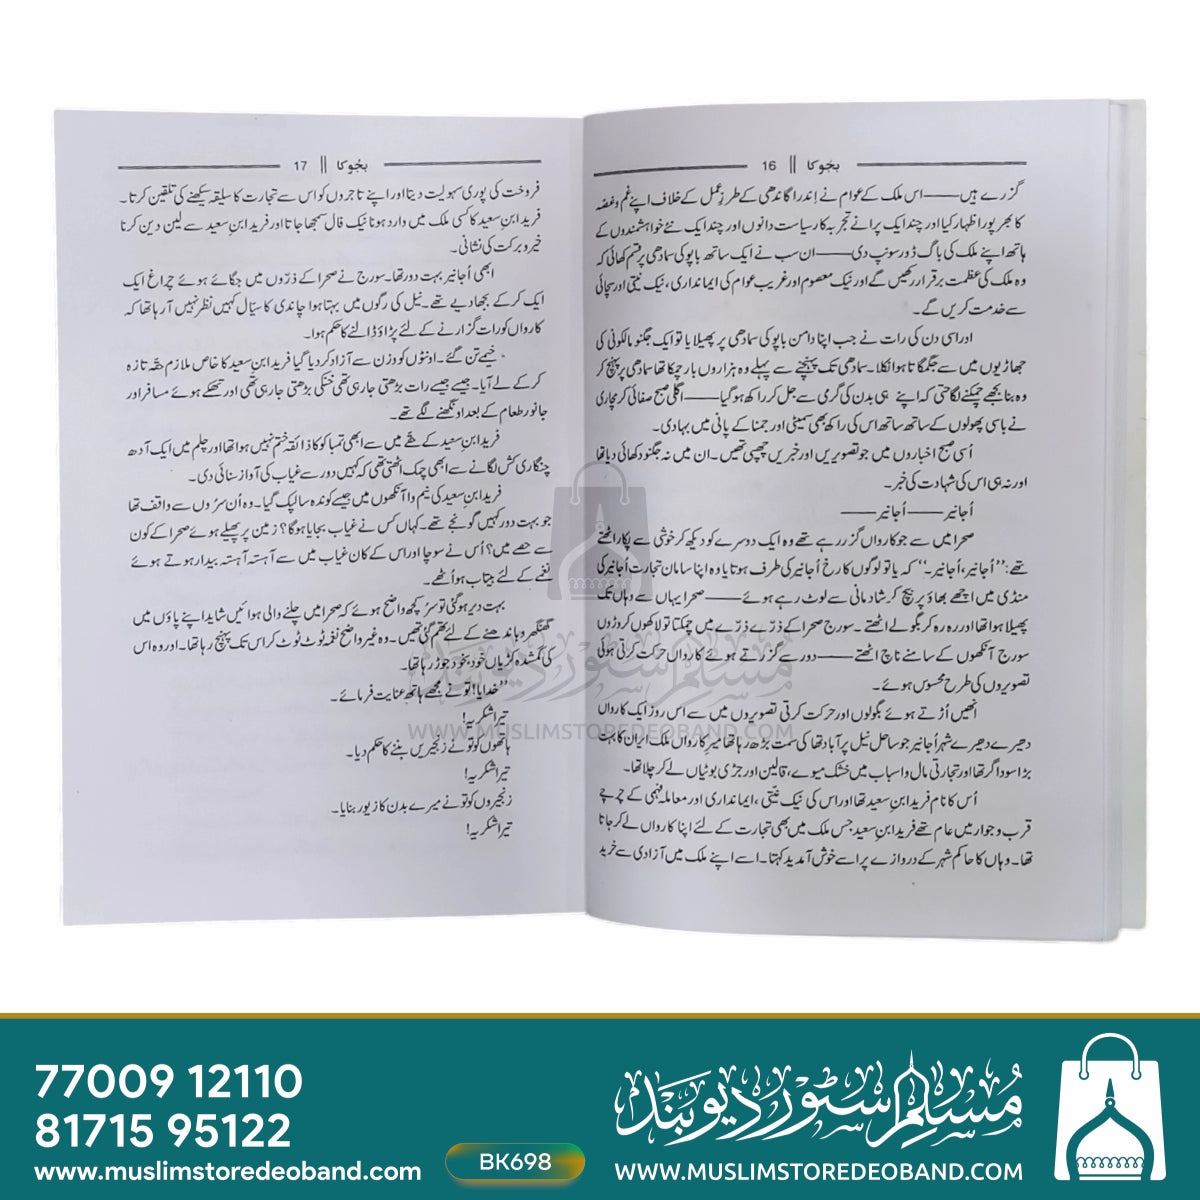 بجوکا || 16
گزرے ہیں——اس ملک کے عوام نے اِندرا گاندھی کے طرزِ عمل کے خلاف اپنے غم و غصّہ
کا بھرپور اظہار کیا اور چند ایک پرانے تجربہ کار سیاست دانوں اور چند ایک نئے خواہشمندوں کے
ہاتھ اپنے ملک کی باگ ڈور سونپ دی——ان سب نے ایک ساتھ باپو کی سمادھی پر قسم کھائی کہ
وہ ملک کی عظمت برقرار رکھیں گے اور نیک معصوم اور غریب عوام کی ایمانداری، نیک نیتی اور سچائی
سے خدمت کریں گے۔
اور اسی دن کی رات نے جب اپنا دامن باپو کی سمادھی پر پھیلا یا تو ایک جگنو مالکونی کی
جھاڑیوں میں سے جگمگاتا ہوا نکلا۔ سمادھی تک پہنچنے سے پہلے وہ ہزاروں بار چمکا تھا سمادھی پر پہنچ کر
وہ بنا بجھے چمکنے لگا حتی کہ اپنے ہی بدن کی گرمی سے جل کر راکھ ہو گیا——اگلی صبح صفائی کرمچاری
نے باسی پھولوں کے ساتھ ساتھ اس کی راکھ بھی سمیٹی اور جمنا کے پانی میں بہا دی۔
اُسی صبح اخباروں میں جو تصویریں اور خبریں چھپی تھیں۔ ان میں نہ جگنو دکھائی دیا تھا
اور نہ ہی اس کی شہادت کی خبر۔
اُجانیر——اُجانیر——
صحرا میں سے جو کارواں گزر رہے تھے وہ ایک دوسرے کو دیکھ کر خوشی سے پکار اٹھتے
تھے: ’’اُجانیر، اُجانیر۔‘‘ کہ یا تو لوگوں کا رخ اُجانیر کی طرف ہوتا یا وہ اپنا سامانِ تجارت اُجانیر کی
منڈی میں اچھے بھاؤ پر بیچ کر شادمانی سے لوٹ رہے ہوتے——صحرا یہاں سے وہاں تک
پھیلا ہوا تھا اور رہ رہ کر بگولے اٹھتے۔ سورج صحرا کے ذرّے ذرّے میں چمکتا تو لاکھوں کروڑوں
سورج آنکھوں کے سامنے ناچ اٹھتے——دور سے گزرتے ہوئے کارواں حرکت کرتی ہوئی
تصویروں کی طرح محسوس ہوئے۔
انھیں اُڑتے ہوئے بگولوں اور حرکت کرتی تصویروں میں سے اس روز ایک کارواں
دھیرے دھیرے شہر اُجانیر جو ساحلِ نیل پر آباد تھا کی سمت بڑھ رہا تھا میرِ کارواں ملک ایران کا بہت
بڑا سوداگر تھا اور تجارتی مال و اسباب میں خشک میوے، قالین اور جڑی بوٹیاں لے کر چلا تھا۔
اُس کا نام فرید ابنِ سعید تھا اور اس کی نیک نیّتی، ایمانداری اور معاملہ فہمی کے چرچے
قرب و جوار میں عام تھے فرید ابنِ سعید جس ملک میں بھی تجارت کے لئے اپنا کارواں لے کر جاتا
تھا۔ وہاں کا حاکم شہر کے دروازے پر اسے خوش آمدید کہتا۔ اسے اپنے ملک میں آزادی سے خرید
بجوکا || 17
فروخت کی پوری سہولیت دیتا اور اپنے تاجروں کو اس سے تجارت کا سلیقہ سیکھنے کی تلقین کرتا۔
فرید ابنِ سعید کا کسی ملک میں وارد ہونا نیک فال سمجھا جاتا اور فرید ابنِ سعید سے لین دین کرنا
خیر و برکت کی نشانی۔
ابھی اُجانیر بہت دور تھا۔ سورج نے صحرا کے ذرّوں میں جگائے ہوئے چراغ ایک
ایک کر کے بجھا دیے تھے۔ نیل کی رگوں میں بہتا ہوا چاندی کا سیّال کہیں نظر نہیں آ رہا تھا کہ
کارواں کو رات گزارنے کے لئے پڑاؤ ڈالنے کا حکم ہوا۔
خیمے تن گئے۔ اونٹوں کو وزن سے آزاد کر دیا گیا فرید ابنِ سعید کا خاص ملازم حقّہ تازہ
کر کے لے آیا۔ جیسے جیسے رات بڑھتی جا رہی تھی خنکی بڑھتی جا رہی تھی اور تھکے ہوئے مسافر اور
جانور طعام کے بعد اونگھنے لگے تھے۔
فرید ابنِ سعید کے حقّے میں سے ابھی تمباکو کا ذائقہ ختم نہیں ہوا تھا اور چلم میں ایک آدھ
چنگاری کش لگانے سے ابھی چمک اٹھتی تھی کہ کہیں دور سے غیاب کی آواز سنائی دی۔
فرید ابنِ سعید کی نیم وا آنکھوں میں جیسے کوندہ سا لپک گیا۔ وہ اُن سُروں سے واقف تھا
جو بہت دور کہیں گونجے تھے۔ کہاں کس نے غیاب بجایا ہوگا؟ زمین پر پھیلے ہوئے صحرا کے کون
سے حصے میں؟ اُس نے سوچا اور اس کے کان غیاب میں سے آہستہ آہستہ بیدار ہوتے ہوئے
نغمے کے لئے بیتاب ہو اُٹھے۔
بہت دیر ہو گئی تو سُر کچھ واضح ہوئے کہ صحرا میں چلنے والی ہوائیں شاید اپنے پاؤں میں
گھنگھرو باندھنے کے لئے تھم گئی تھیں۔ وہ غیر واضح نغمہ ٹوٹ ٹوٹ کر اس تک پہنچ رہا تھا۔ اور وہ اس
کی گمشدہ کڑیاں خود بخود جوڑ رہا تھا۔
’’خدایا! تو نے مجھے ہاتھ عنایت فرمائے۔
تیرا شکریہ!
ہاتھوں کو تو نے زنجیریں بننے کا حکم دیا۔
تیرا شکریہ!
زنجیروں کو تو نے میرے بدن کا زیور بنایا۔
تیرا شکریہ!
مسلم سٹور دیوبند
WWW.MUSLIMSTOREDEOBAND.COM
77009 12110
81715 95122
www.muslimstoredeoband.com
BK698
مسلم سٹور دیوبند
WWW.MUSLIMSTOREDEOBAND.COM